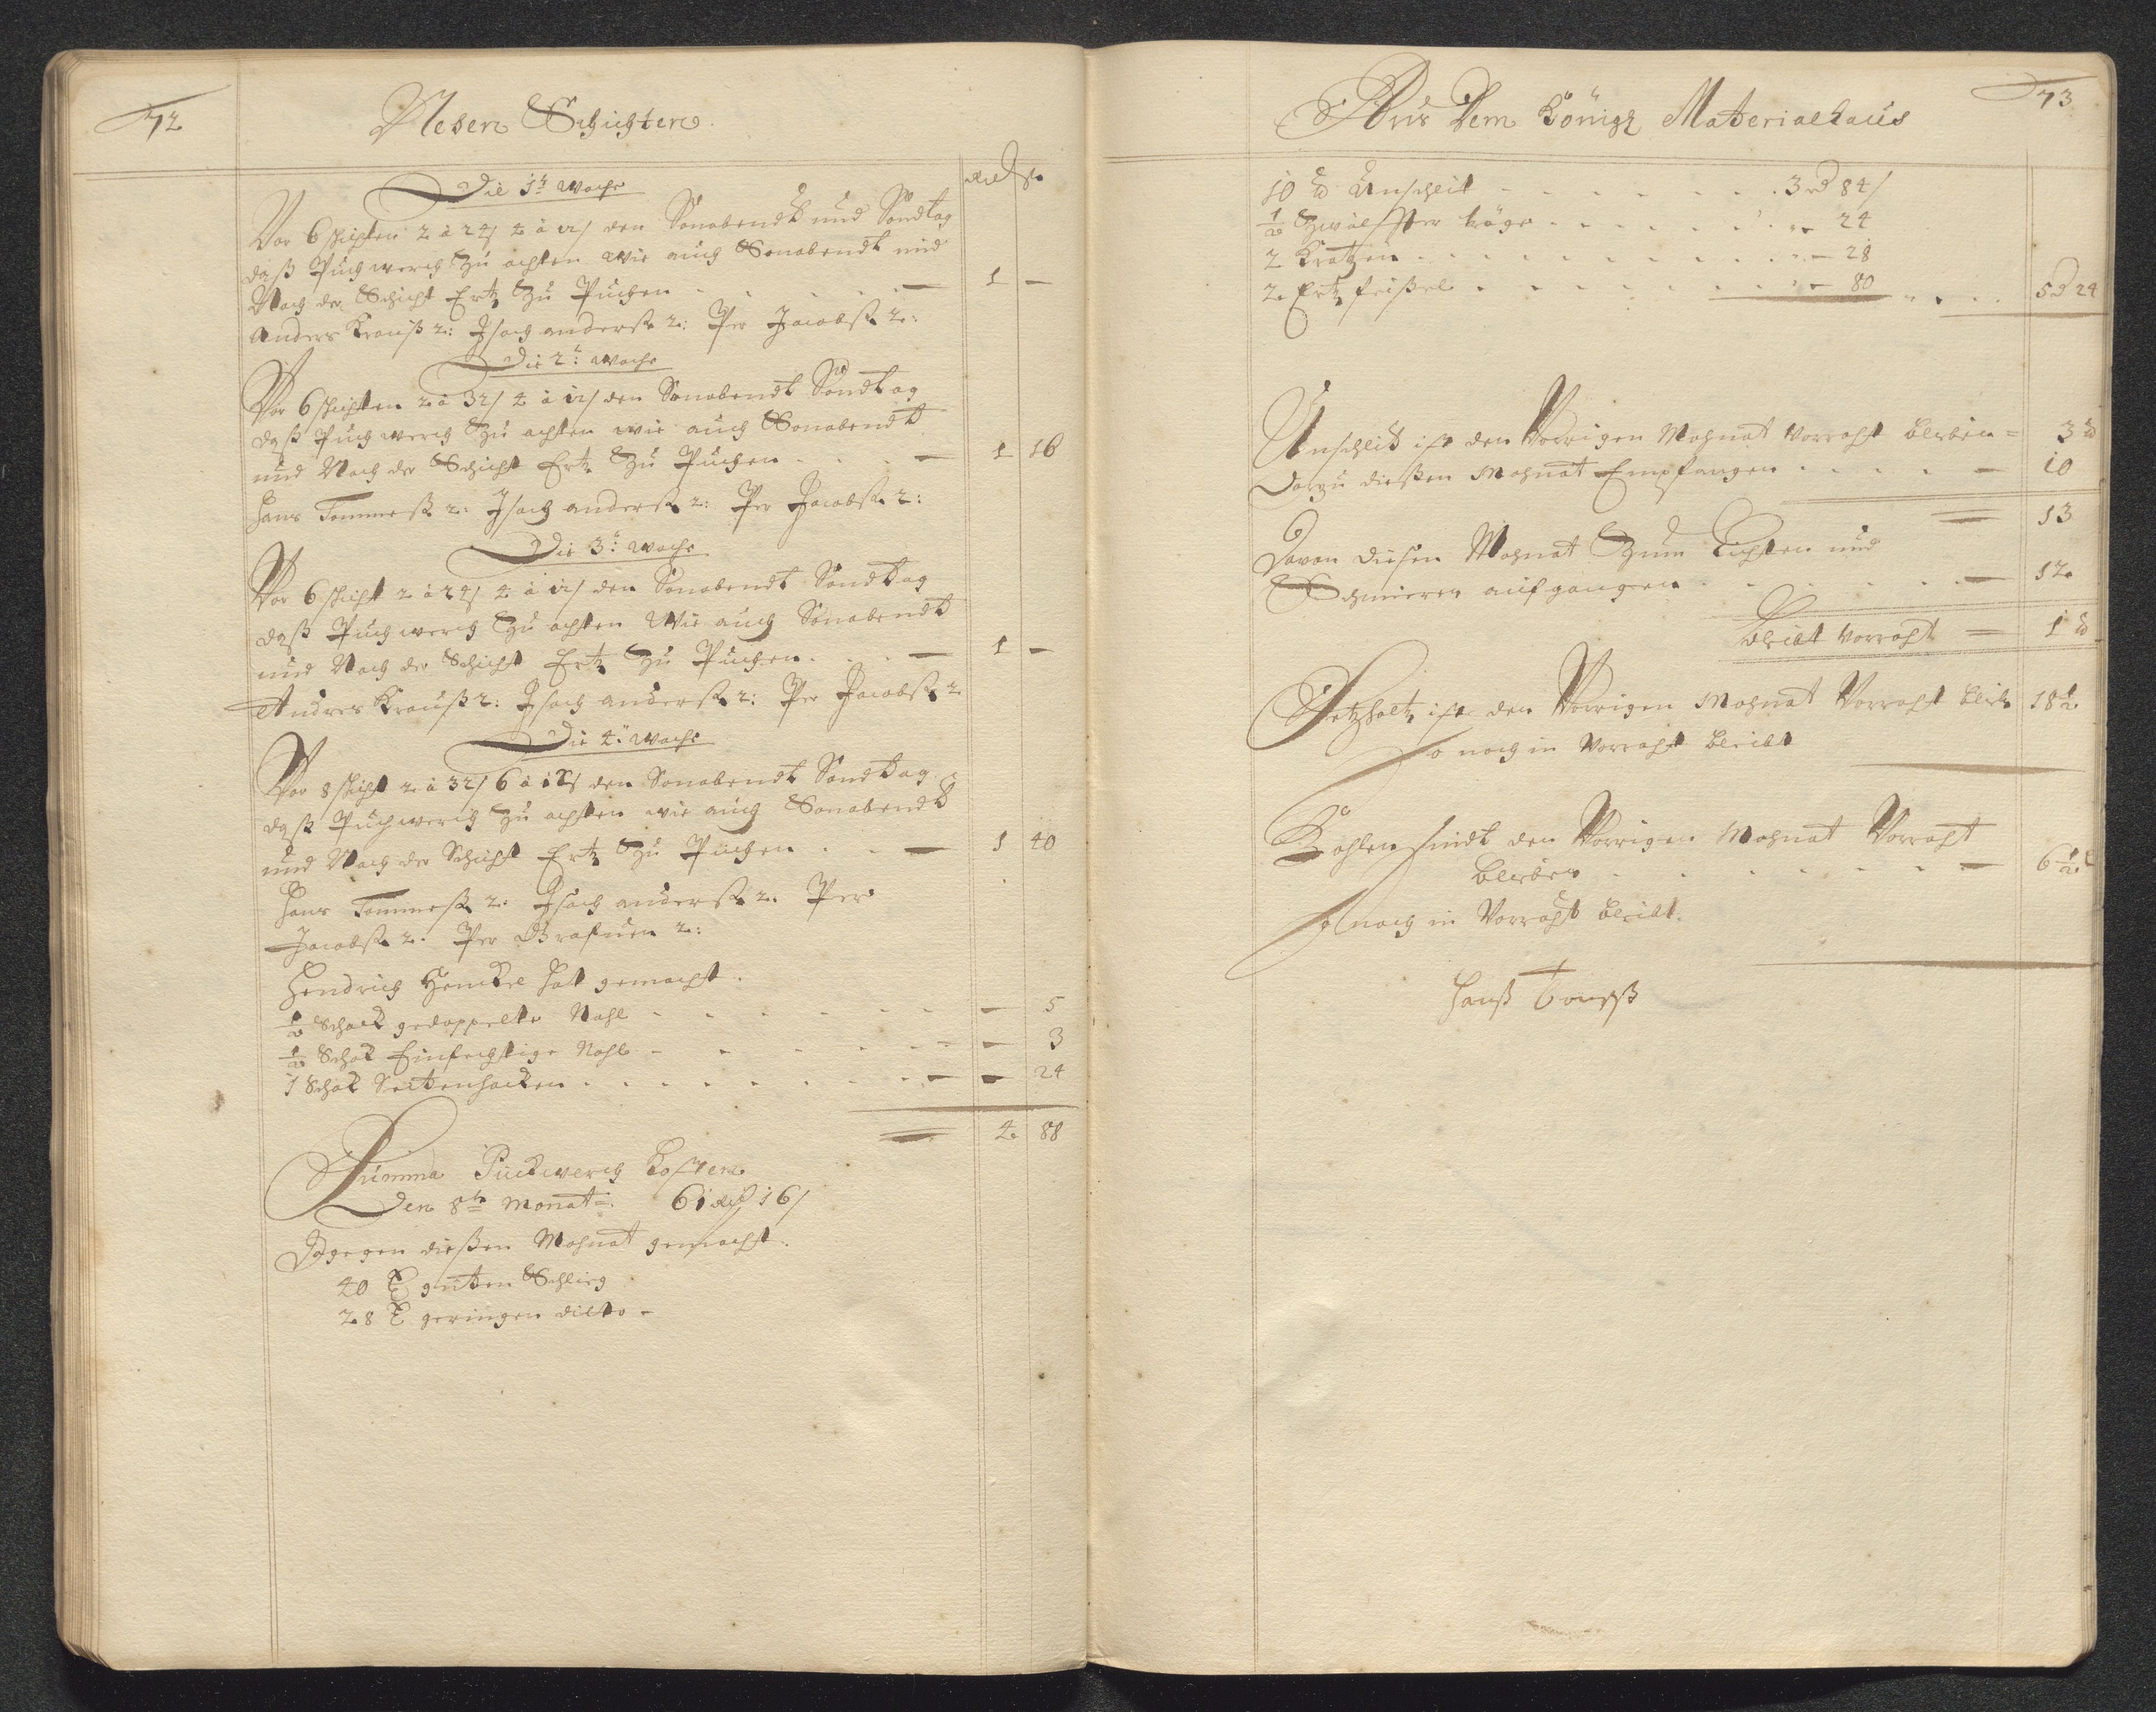 72
Neben Schichten
Rd ß
Die 1te Woche
Vor 6 schichten 2 à 24/ 4 à 12/ den Sonabendt und Sondtag
daß Puchwerch Zu achten wie auch Sonabendt und
Nach der Schicht Ertz Zu Puchen - 1 -
Anders Krauß 2: Isach anderß 2: Per Jacobß 2:
Die 2te Woche
Vor 6 schichten 2 à 32/ 4 à 12/ den Sonabendt Sondtag
daß Puchwerch Zu achten wie auch Sonabendt
und Nach der Schicht Ertz Zu Puchen - 1 16
Hans Tommeß 2: Isach anderß 2: Per Jacobß 2:
Die 3te Woche
Vor 6 schicht 2 à 24/ 4 à 12/ den Sonabendt Sondtag
daß Puchwerch Zu achten Wie auch Sonabendt
und Nach der Schicht Ertz Zu Puchen - 1 -
Andres Krauß 2: Isach anderß 2: Per Jacobß 2
Die 4te Woche
Vor 8 schicht 2 à 32/ 6 à 12/ den Sonabendt Sondtag
daß Puchwerch Zu achten wie auch Sonabendt
und Nach der Schicht Ertz Zu Puchen - 1 40
Hans Tommeß 2: Isach anderß 2: Per
Jacobß 2: Per 2:
Hendrich Henckel hat gemacht.
1/2 Schock gedoppelte Nahl - 5
1/2 Schock Einfechtige Nahl - 3
1 Schock hacken - 24
4 88
Summa Puckwerch Kosten
Den 8te Monat: 61 Rd 16/
Dagegen dießen Mohnat gemacht:
40 guten Schlieg
28 geringen ditto -
73
Aus Dem Königl Materialhaus
10 ℔ Unschlit - 3 Rd 84/
1/2 Zwölffter tröge - 24
2 Kratzen - 28
2 Ertz feißel - 80 5 Rd 24
Unschlit ist den Vorrigen Mohnat Vorraht blieben = 3 ℔
Darzu dießen Mohnat Empfangen - 10
= 13
Davon diesen Mohnat Zum Lichten und
Schmieren aufgangen - 12
bleibt vorraht = 1 ℔
Setzholtz ist den Vorrigen Mohnat Vorraht blieb 18 1/2
So noch in Vorraht bleibt
Kohlen sindt den Vorrigen Mohnat Vorraht
blieben - 6 1/2
So noch in Vorraht bleibt.